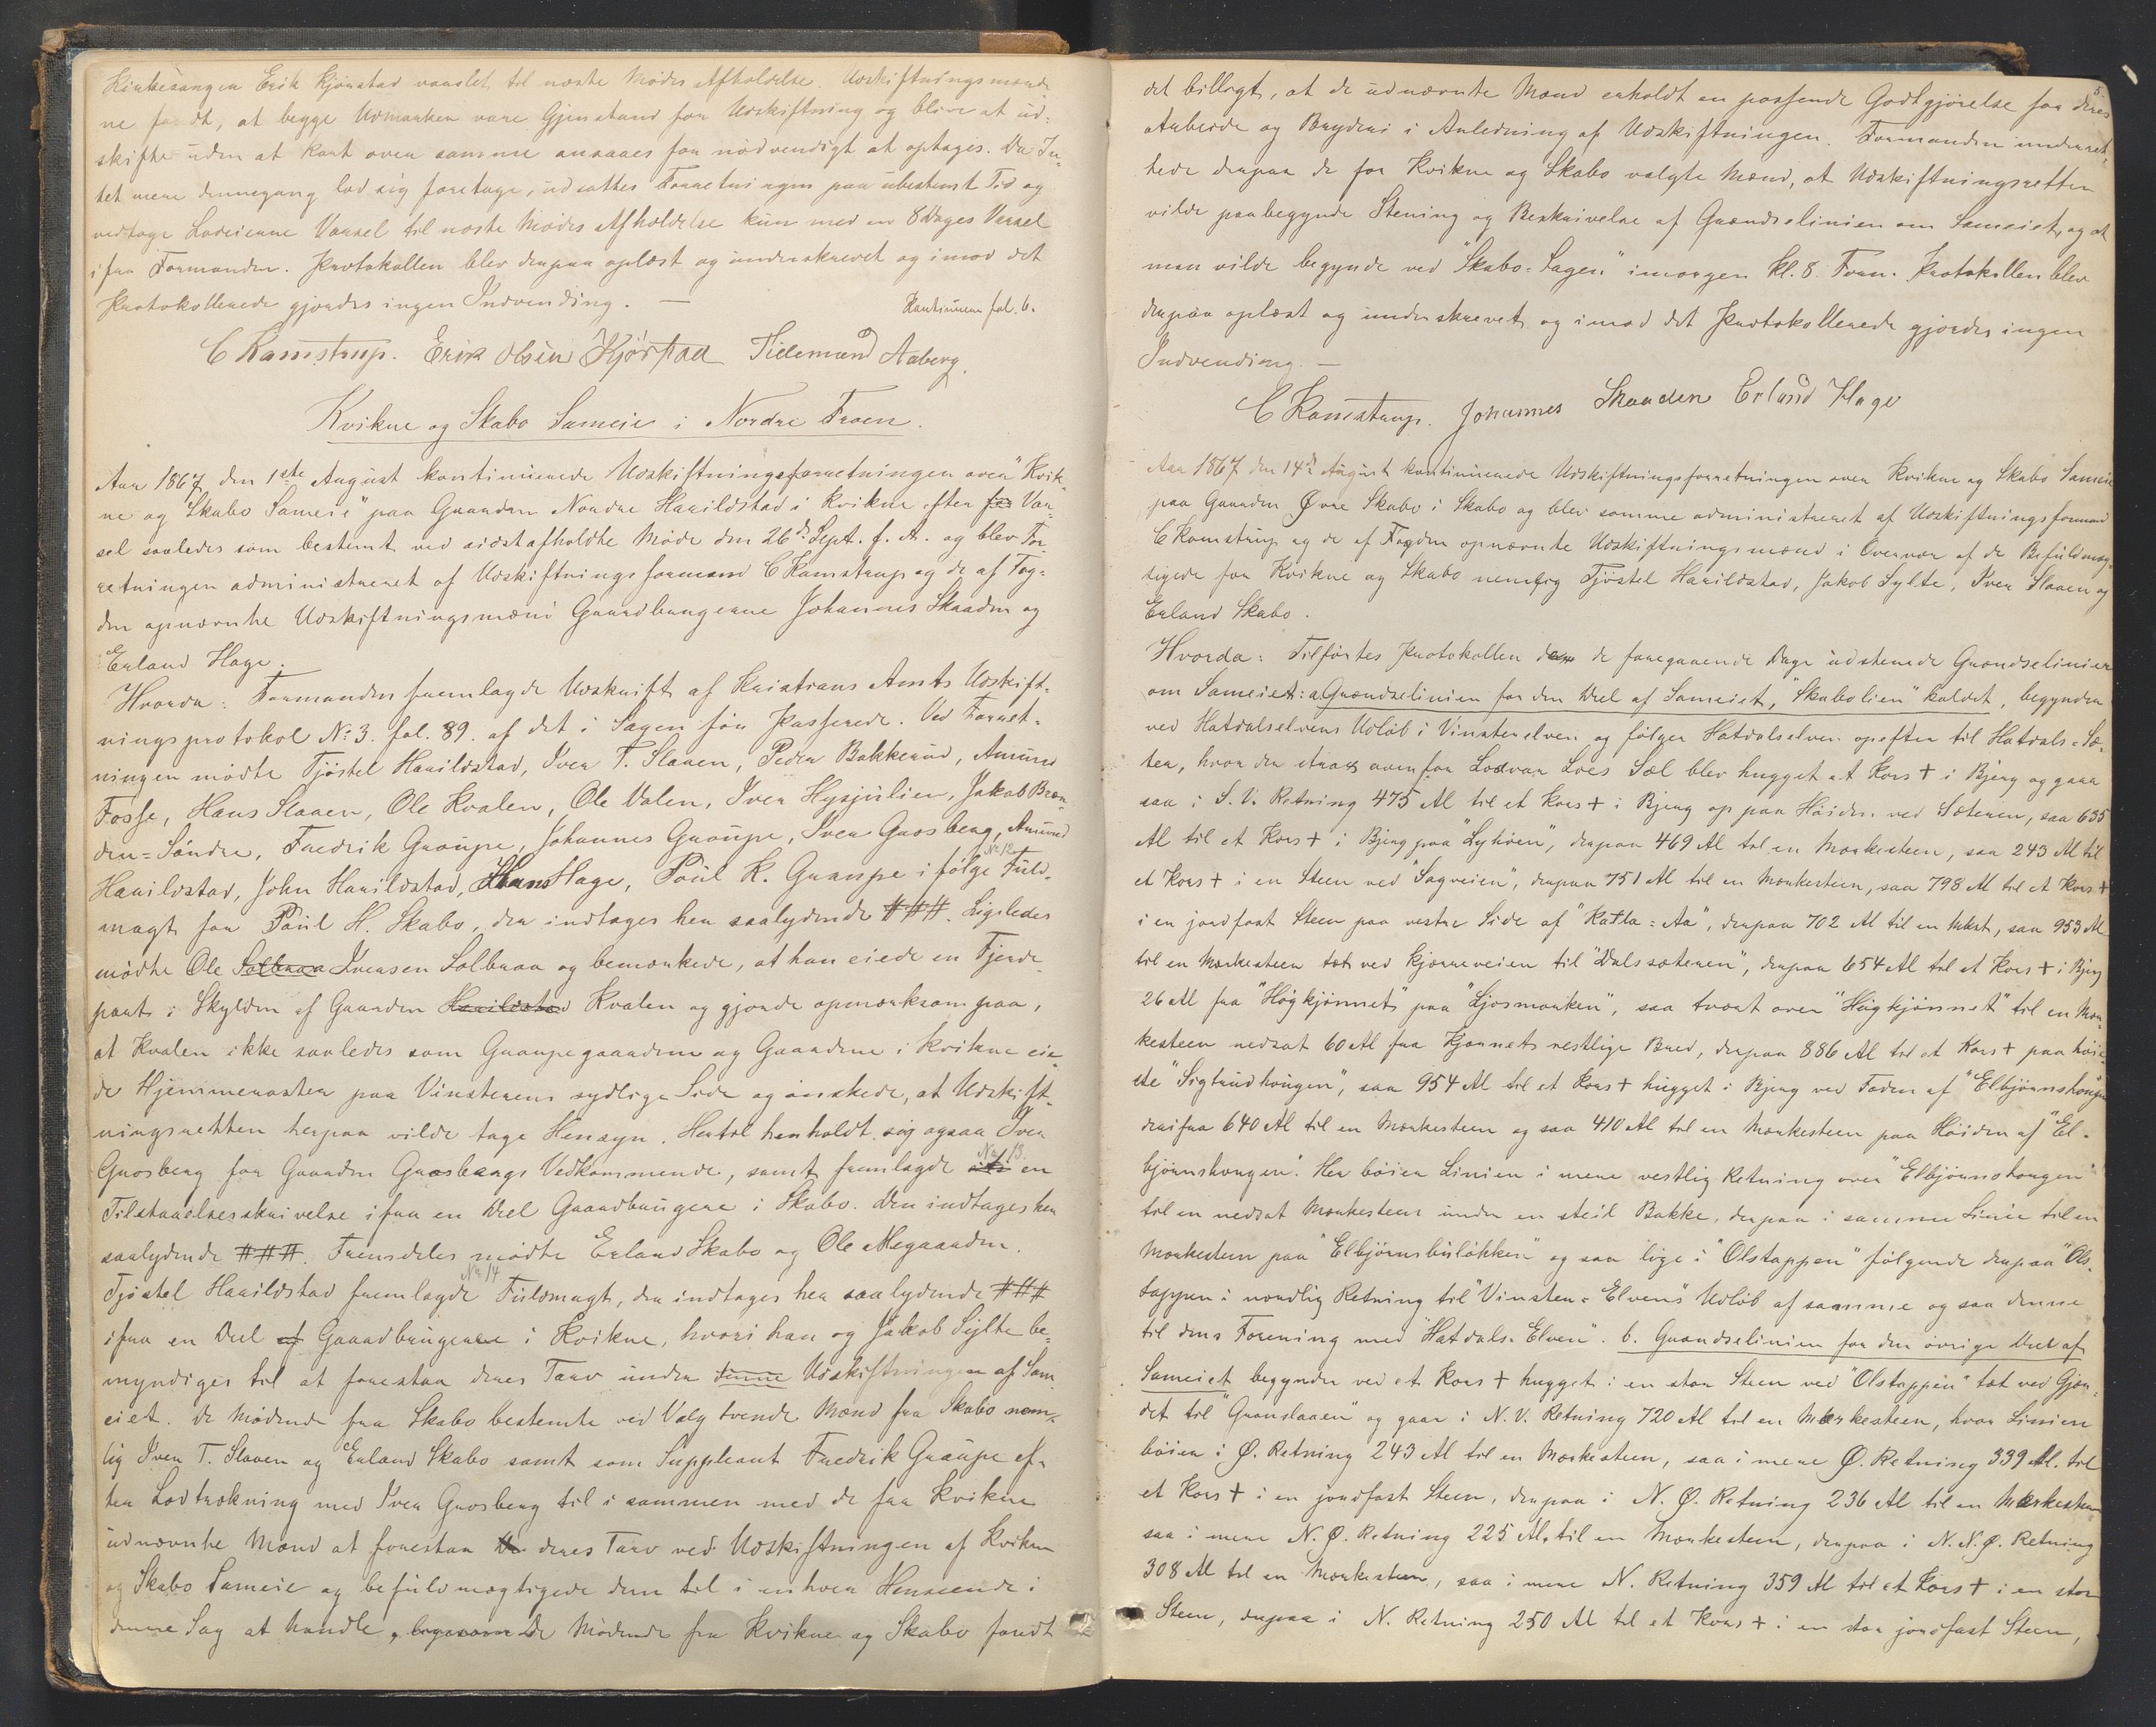 Kirkesanger Erik Kjønstad varslet til næste Mødes Afholdelse. Udskiftningsmænde
ne fandt, at begge Udmarker vare Gjenstand for Udskiftning og blive at ud-
skifte uden at Kart over samme ansaaes for nødvendigt at optages. Da In-
tet mere dennegang lod sig foretage, udsattes Forretningen paa ubestemt Tid og
vedtoge Lodeierne Varsel til næste Mødes Afholdelse kun med en 8 Dages Varsel
ifra Formanden. Protokollen blev derpaa oplæst og underskrevet og imod det
Protokollerede gjordes ingen Indvending. —
Kontinuerer fol. 6.
C Ramstrup. Erik Olsen Kjørstad Tidemand Aaberg.
Kvikne og Skabo Sameie i Nordre Froen.
Aar 1867 den 1ste August kontinuerede Udskiftningsforretningen over "Kvik-
ne og Skabo Sameie" paa Gaarden Nordre Harildstad i Kvikne efter for Var-
sel saaledes som bestemt ved sidstafholdte Møde den 26de Sept. f. A. og blev For
retningen administreret af Udskiftningsformand C Ramstrup og de af Fog-
den opnævnte Udskiftningsmænd Gaardbrugerne Johannes Skaaden og
Erland Hage.
Hvorda: Formanden fremlagde Udskrift af Kristians Amts Udskift-
ningsprotokol No. 3. fol. 89. af det i Sagen før Passerede. Ved Forret-
ningen mødte Tjøstel Harildstad, Iver T. Slaaen, Peder Bakkerud, Amund
Fosse, Hans Slaaen, Ole Kvalen, Ole Dalen, Iver Hysjulien, Jakob Bræn-
den-Søndre, Fredrik Graupe, Johannes Graupe, Iver Grosberg, Amund
Harildstad, John Harildstad, Hans Hage, Poul K. Graupe i følge Fuld-
No 12
magt for Poul H. Skabo, der indtages her saalydende ###. Ligeledes
mødte Ole Solbraa Iversen Solbraa og bemærkede, at han eiede en Fjerde-
part i Skylden af Gaarden Harildstad Kvalen og gjorde opmærksom paa,
at Kvalen ikke saaledes som Graupegaardene og Gaardene i Kvikne eie-
de Hjemmeraster paa Vinsterens sydlige Side og ønskede, at Udskift-
ningsretten herpaa vilde tage Hensyn. Hertil henholdt sig ogsaa Iver
Grosberg for Gaarden Grosbergs Vedkommende, samt fremlagde en
No 13.
Tilstaaelsesskrivelse ifra en Deel Gaardbrugere i Skabo. Den indtages her
saalydende ###. Fremdeles mødte Erland Skabo og Ole Megaarden.
No 14
Tjøstel Harildstad fremlagde Fuldmagt, der indtages her saalydende ###
ifra en Deel af Gaardbrugerne i Kvikne, hvori han og Jakob Sylte be-
myndiges til at forestaa deres Tarv under denne Udskiftningen af Sam-
eiet. De Mødende fra Skabo bestemte ved Valg tvende Mænd fra Skabo nem-
lig Iver T. Slaaen og Erland Skabo samt som Suppleant Fredrik Graupe ef-
ter Lodtrækning med Iver Grosberg til i sammen med de fra Kvikne
udnævnte Mænd at forestaa De deres Tarv ved Udskiftningen af Kvikne
og Skabo Sameie og befuldmægtigede dem til i enhver Henseende i
denne Sag at handle, De Mødende fra Kvikne og Skabo fandt
5.
det billigt, at de udnævnte Mænd erholdt en passende Godtgjørelse for deres
Arbeide og Bryderi i Anledning af Udskiftningen. Formanden underret-
tede derpaa de for Kvikne og Skabo valgte Mænd, at Udskiftningsretten
vilde paabegynde Stening og Beskrivelse af Grændselinien om Sameiet, og at
man vilde begynde ved "Skabo-Sagen" imorgen Kl. 8. Form. Protokollen blev
derpaa oplæst og underskrevet og imod det Protokollerede gjordes ingen
Indvending. —
C Ramstrup. Johannes Skaaden Erland Hage
Aar 1867 den 14de August kontinuerede Udskiftningsforretningen over Kvikne og Skabo Sameie
paa Gaarden Øvre Skabo i Skabo og blev samme administreret af Udskiftningsformand
C Ramstrup og de af Fogden opnævnte Udskiftningsmænd i Overvær af de Befuldmæg-
tigede for Kvikne og Skabo nemlig Tjøstel Harildstad, Jakob Sylte, Iver Slaaen og
Erland Skabo.
Hvorda: Tilførtes Protokollen de foregaaende Dage udstenede Grændselinier
om Sameiet: a. Grændselinien for den Deel af Sameiet, "Skabolien" kaldet, begynder
ved Hatdalselvens Udløb i Vinsterelven og følger Hatdalselven opefter til Hatdals-Sæ-
ter, hvor der strax ovenfor Lodvar Loes Sæl blev hugget et Kors + i Bjerg og gaar
saa i S.V. Retning 475 Al til et Kors + i Bjerg op paa Høiden ved Sæteren, saa 635
Al til et Kors + i Bjerg paa "Lyhøen", derpaa 469 Al til en Mærkesteen, saa 243 Al til
et Kors + i en Steen ved "Sagveien", derpaa 751 Al til en Mærkesteen, saa 798 Al til et Kors +
i en jordfast Steen paa vestre Side af "Katla-Aa", derpaa 702 Al til en Mkst, saa 953 Al
til en Mærkesteen tæt ved Kjørreveien til "Dalssæteren", derpaa 654 Al til et Kors + i Bjerg
26 Al fra "Høgkjønnet" paa "Ljosmorken", saa tvert over "Høgkjønnet" til en Mær-
kesteen nedsat 60 Al fra Kjønnets vestlige Bred, derpaa 886 Al til et Kors + paa høie-
ste "Sigtrudhougen", saa 954 Al til et Kors + hugget i Bjerg ved Foden af "Elbjørnshougen
derifra 640 Al til en Mærkesteen og saa 410 Al til en Mærkesteen paa Høiden af "El-
bjørnshougen". Her bøier Linien i mere vestlig Retning over "Elbjørnshougen"
til en nedsat Mærkesteen under en steil Bakke, derpaa i samme Linie til en
Mærkesteen paa "Elbjørnsbuløkken" og saa lige i "Olstappen" følgende derpaa "Ols-
tappen i nordlig Retning til "Vinster-Elvens" Udløb af samme og saa denne
til dens Forening med "Hatdals-Elven". b. Grændselinien for den øvrige Deel af
Sameiet begynder ved et Kors + hugget i en stor Steen ved "Olstappen" tæt ved Gjær-
det til "Granslaaen" og gaar i N.V. Retning 720 Al til en Mærkesteen, hvor Linien
bøier i Ø. Retning 243 Al til en Mærkesteen, saa i mere Ø. Retning 339 Al. til
et Kors + i en jordfast Steen, derpaa i N.Ø. Retning 236 Al til en Mærkesteen
saa i mere N.Ø. Retning 225 Al. til en Mærkesteen, derpaa i N.N.Ø. Retning
308 Al til en Mærkesteen, saa i mere N. Retning 359 Al til et Kors + i en stor
Steen, derpaa i N. Retning 250 Al til et Kors + i en stor jordfast Steen,